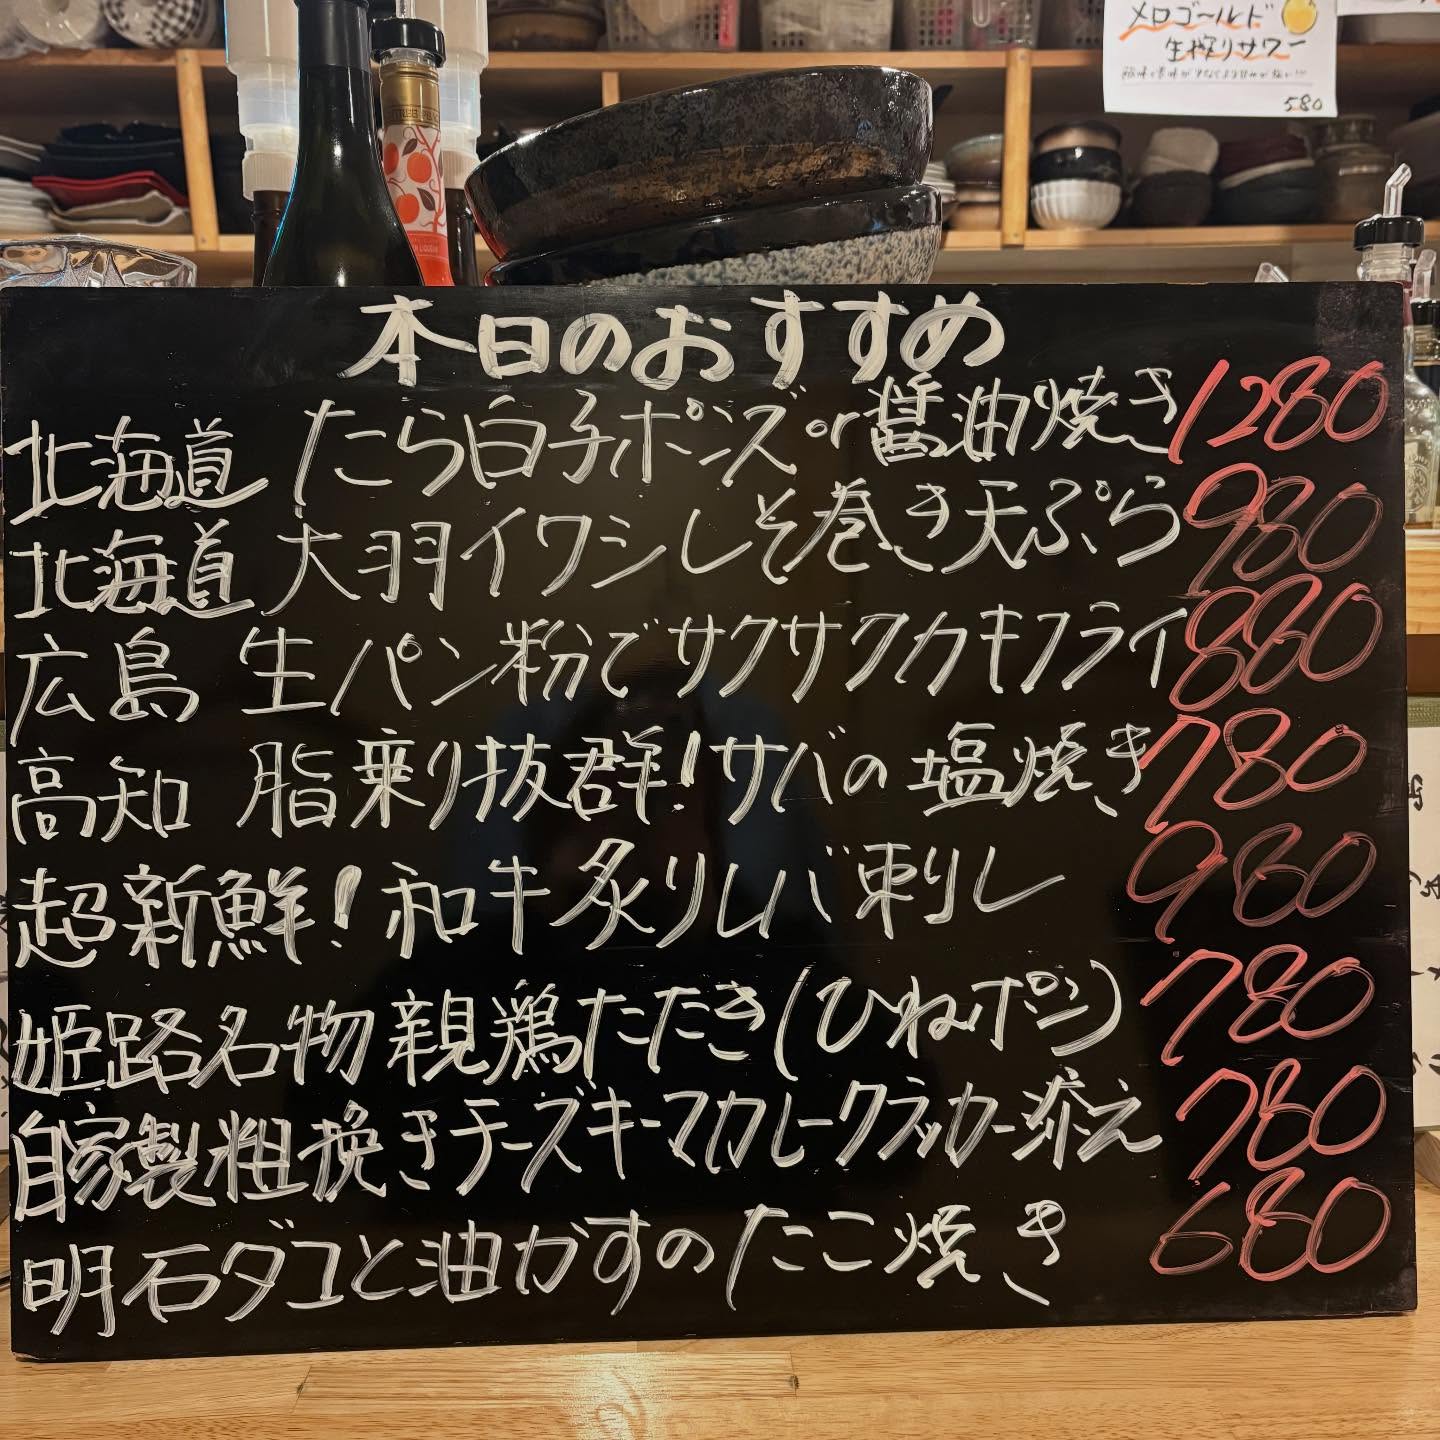 メロゴールド
生搾りサワー
580
本日のおすすめ
北海道 たら白子ポンズor醤油焼き 1280
北海道 大羽イワシしそ巻き天ぷら 980
広島 生パン粉でサクサクカキフライ 880
高知 脂乗り抜群!サバの塩焼き 780
超新鮮!和牛炙りレバ刺し 980
姫路名物親鶏たたき(ひねポン) 780
自家製粗挽きチーズキーマカレークラッカー添え 780
明石ダコと油かすのたこ焼き 680